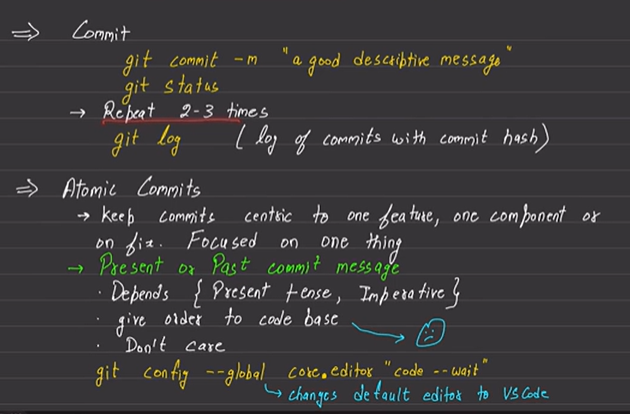 ⇒ Commit
git commit -m "a good descriptive message"
git status
→ Repeat 2-3 times
git log ( log of commits with commit hash)
⇒ Atomic Commits
→ keep commits centric to one feature, one component or
on fix. Focused on one thing
→ Present or Past commit message
· Depends { Present tense, Imperative }
· give order to code base
· Don't care
git config --global core.editor "code --wait"
↳ changes default editor to VS Code